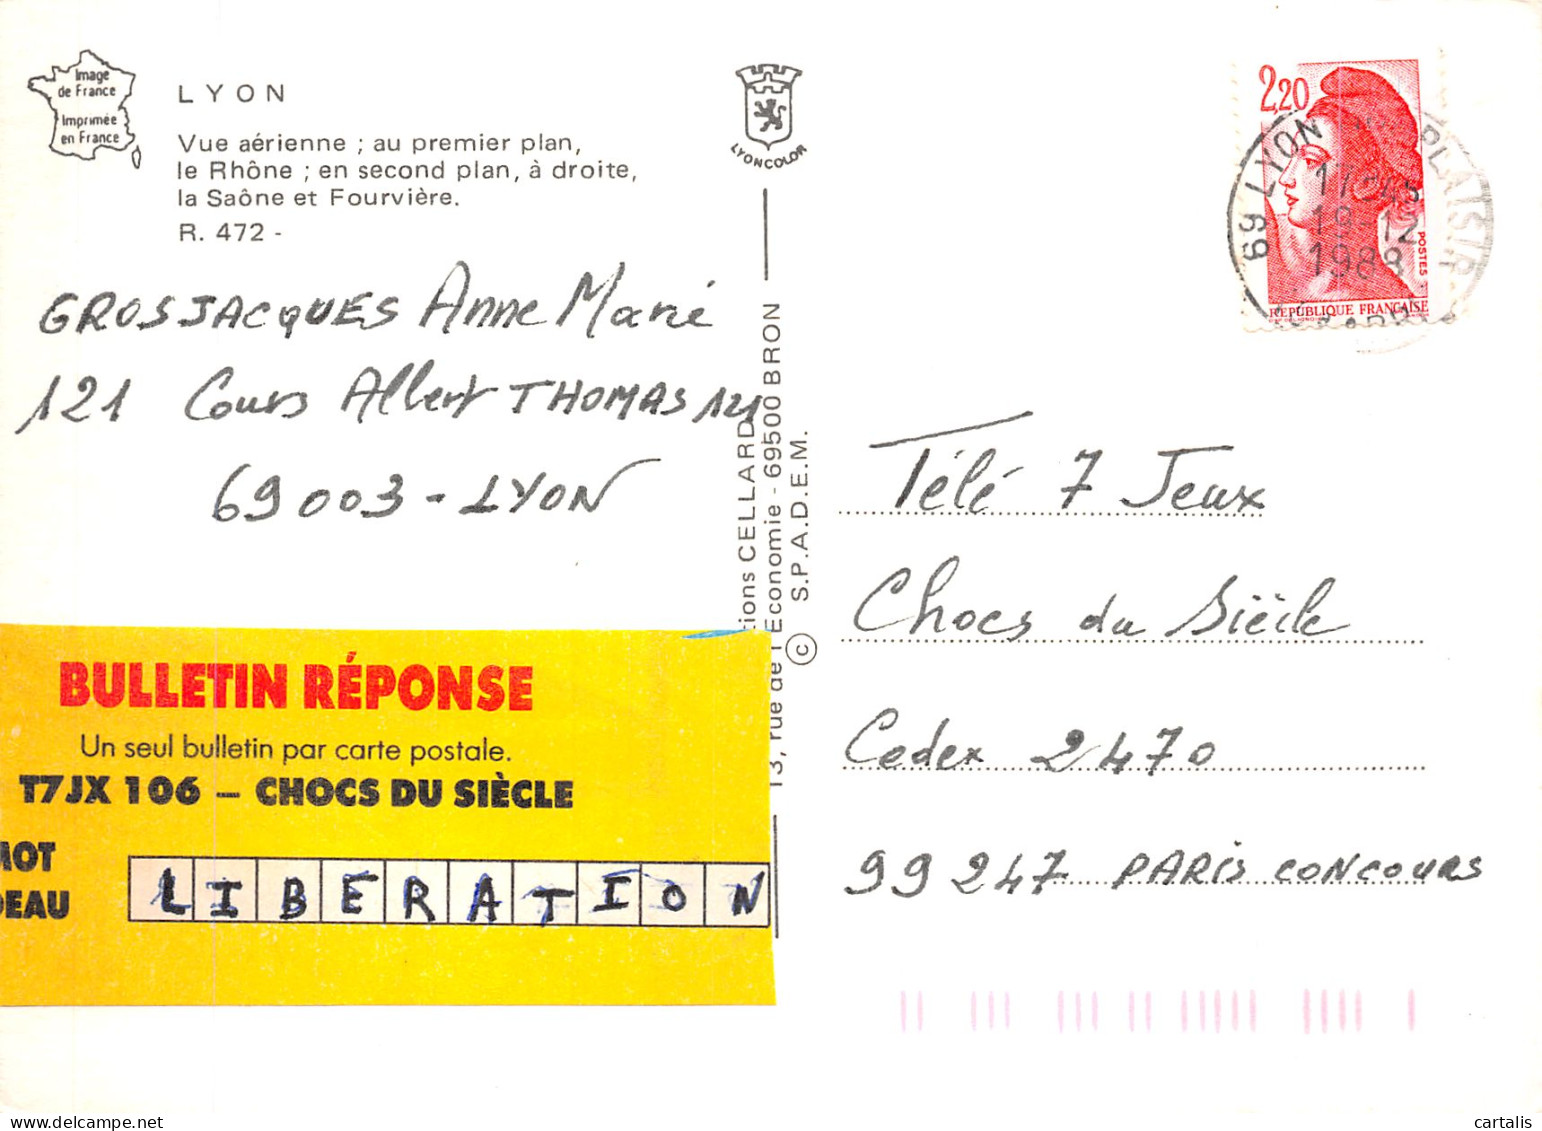 Image
de France
Imprimée
en France
LYON
Vue aérienne ; au premier plan,
le Rhône ; en second plan, à droite,
la Saône et Fourvière.
R. 472 -
LYONCOLOR
2,20
POSTES
REPUBLIQUE FRANÇAISE
69 LYON
17H45
19-12
1988
GROSJACQUES Anne Marie
121 Cours Albert THOMAS 121
69003 - LYON
13, rue de l'Economie - 69500 BRON
CELLARD
© S.P.A.D.E.M.
Télé 7 Jeux
Chocs du Siècle
Cedex 2470
99247 PARIS CONCOURS
BULLETIN RÉPONSE
Un seul bulletin par carte postale.
T7JX 106 – CHOCS DU SIÈCLE
LIBERATION
cartalis